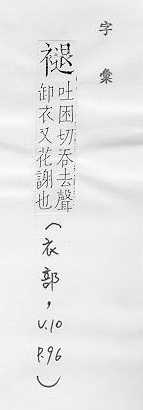 字彙
褪吐困切吞去聲
卸衣又花謝也
(衣部,V.10
P.96)